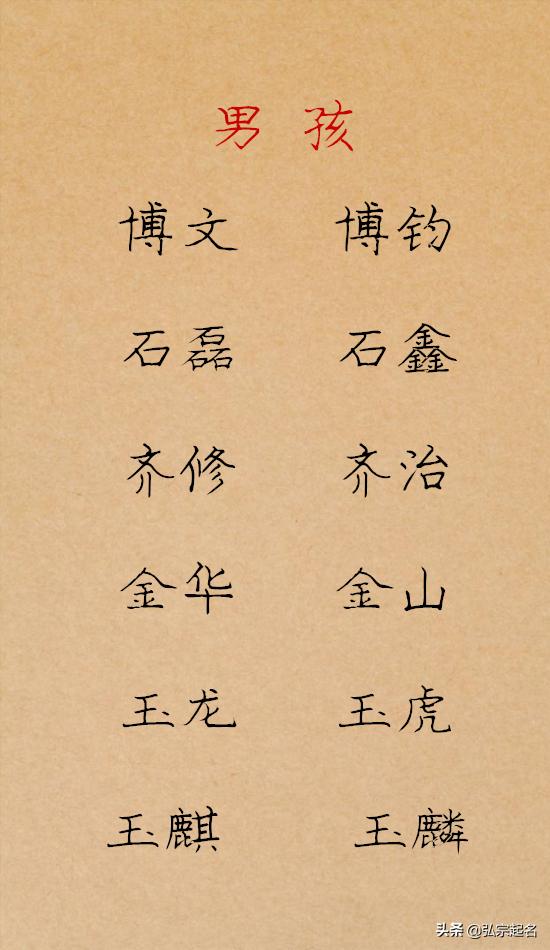 男孩
博文 博钧
石磊 石鑫
齐修 齐治
金华 金山
玉龙 玉虎
玉麒 玉麟
头条 @弘宗起名